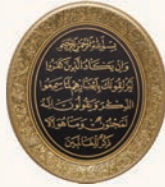 بسم الله الرحمن الرحيم
وإن يكاد الذين كفروا
ليزلقونك بأبصارهم لما سمعوا
الذكر ويقولون إنه
لمجنون وما هو إلا
ذكر للعالمين